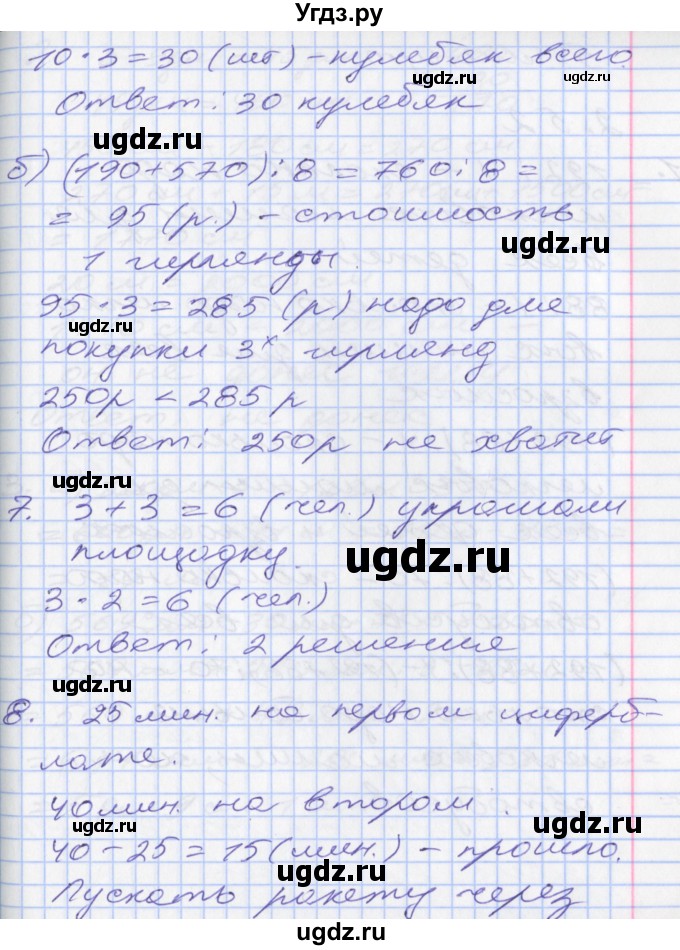 Угдз.ру
10 · 3 = 30 (шт) – кулебяк всего.
ugdz.ru
ugdz.ru
Ответ: 30 кулебяк
ugdz.ru
б) (190+570):8 = 760:8 =
= 95 (р.) – стоимость
ugdz.ru
1 гирлянды.
95 · 3 = 285 (р) надо для
ugdz.ru
покупки 3х гирлянд
250р < 285 р
Ответ: 250р не хватит
ugdz.ru
7. 3 + 3 = 6 (чел.) украшали
площадку.
ugdz.ru
3 · 2 = 6 (чел.)
ugdz.ru
Ответ: 2 решения
ugdz.ru
8. 25 мин. на первом циферб-
лате.
40 мин. на втором.
ugdz.ru
40 – 25 = 15 (мин.) – прошло.
ugdz.ru
Пускать ракету через
ugdz.ru